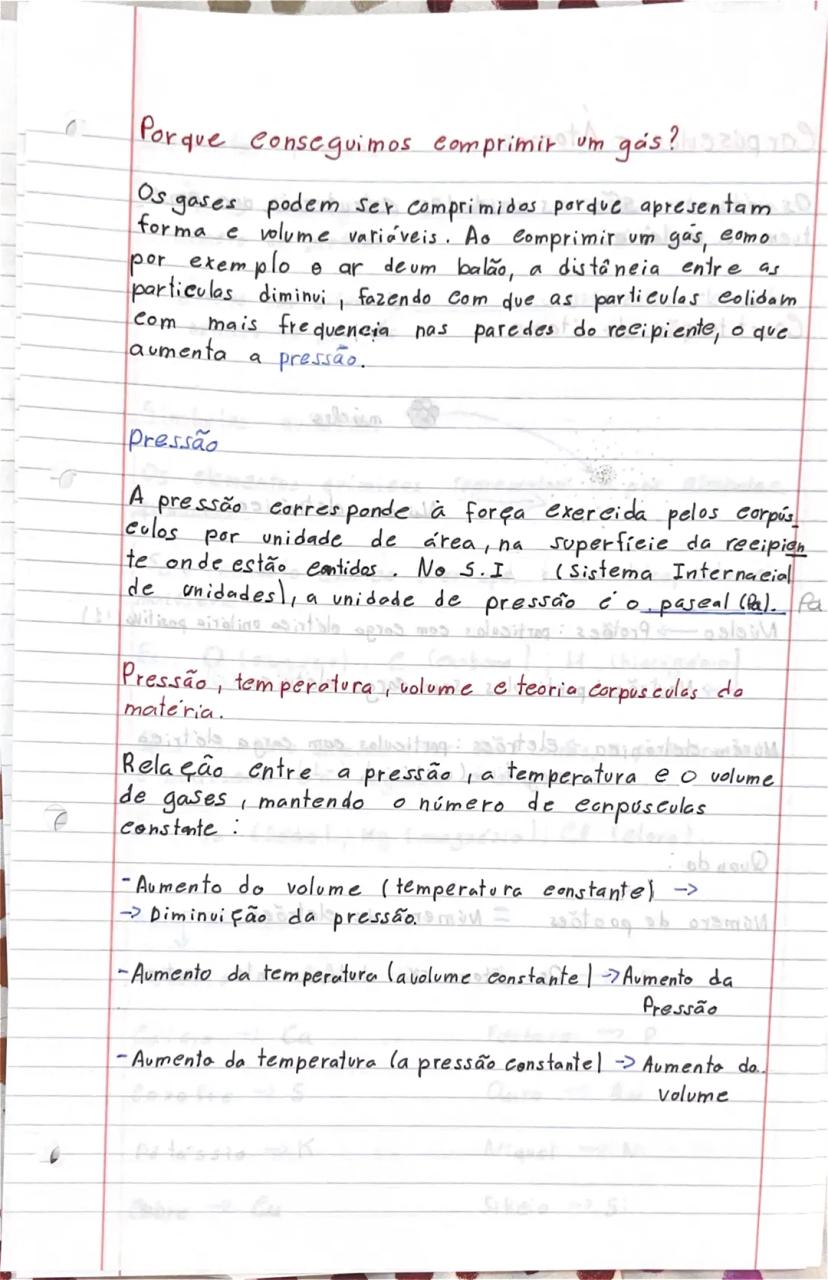 Porque conseguimos comprimir um gás?
Os gases podem ser comprimidos porque apresentam
forma e volume variáveis. Ao comprimir um gás, como
por exemplo o ar deum balão, a distância entre as
particulas diminui, fazendo com que as particulas colidam
com mais frequencia nas paredes do recipiente, o que
aumenta a pressão.
pressão
A pressão corresponde à força exercida pelos corpús
culos por unidade de área, na superfície da recipien
te onde estão contidos. No S.I (Sistema Internacial
de unidades), a unidade de pressão é o pascal (Pa). Pa
Pressão, temperatura, volume e teoria corpusculas da
matéria.
Relação entre a pressão, a temperatura e o volume
de gases, mantendo o número de corpúsculas
constante:
- Aumento do volume (temperatura constante) ->
-> Diminuição da pressão.
- Aumento da temperatura (a volume constante) -> Aumento da
Pressão
- Aumento da temperatura (a pressão constante) -> Aumento do
volume